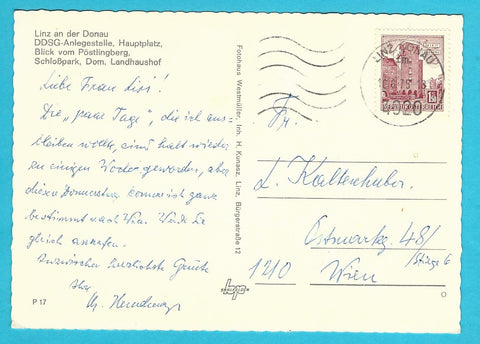 Linz an der Donau
DDSG-Anlegestelle, Hauptplatz,
Blick vom Pöstlingberg,
Schloßpark, Dom, Landhaushof
Liebe Frau Lisi!
Die „paar Tage", die ich aus-
bleiben wollte, sind halt wieder
zu einigen Wochen geworden, aber
diesen Donnerstag komme ich ganz
bestimmt nach Wien. Werde Sie
gleich anrufen.
Inzwischen herzlichste Grüße
Ihre
P 17
Fotohaus Westmüller, Inh. H. Kunasz, Linz, Bürgerstraße 12
LINZ DONAU
4020
Fr.
L. Kaltenhuber
Ostmarkg. 48/
Stiege 6
1210 Wien